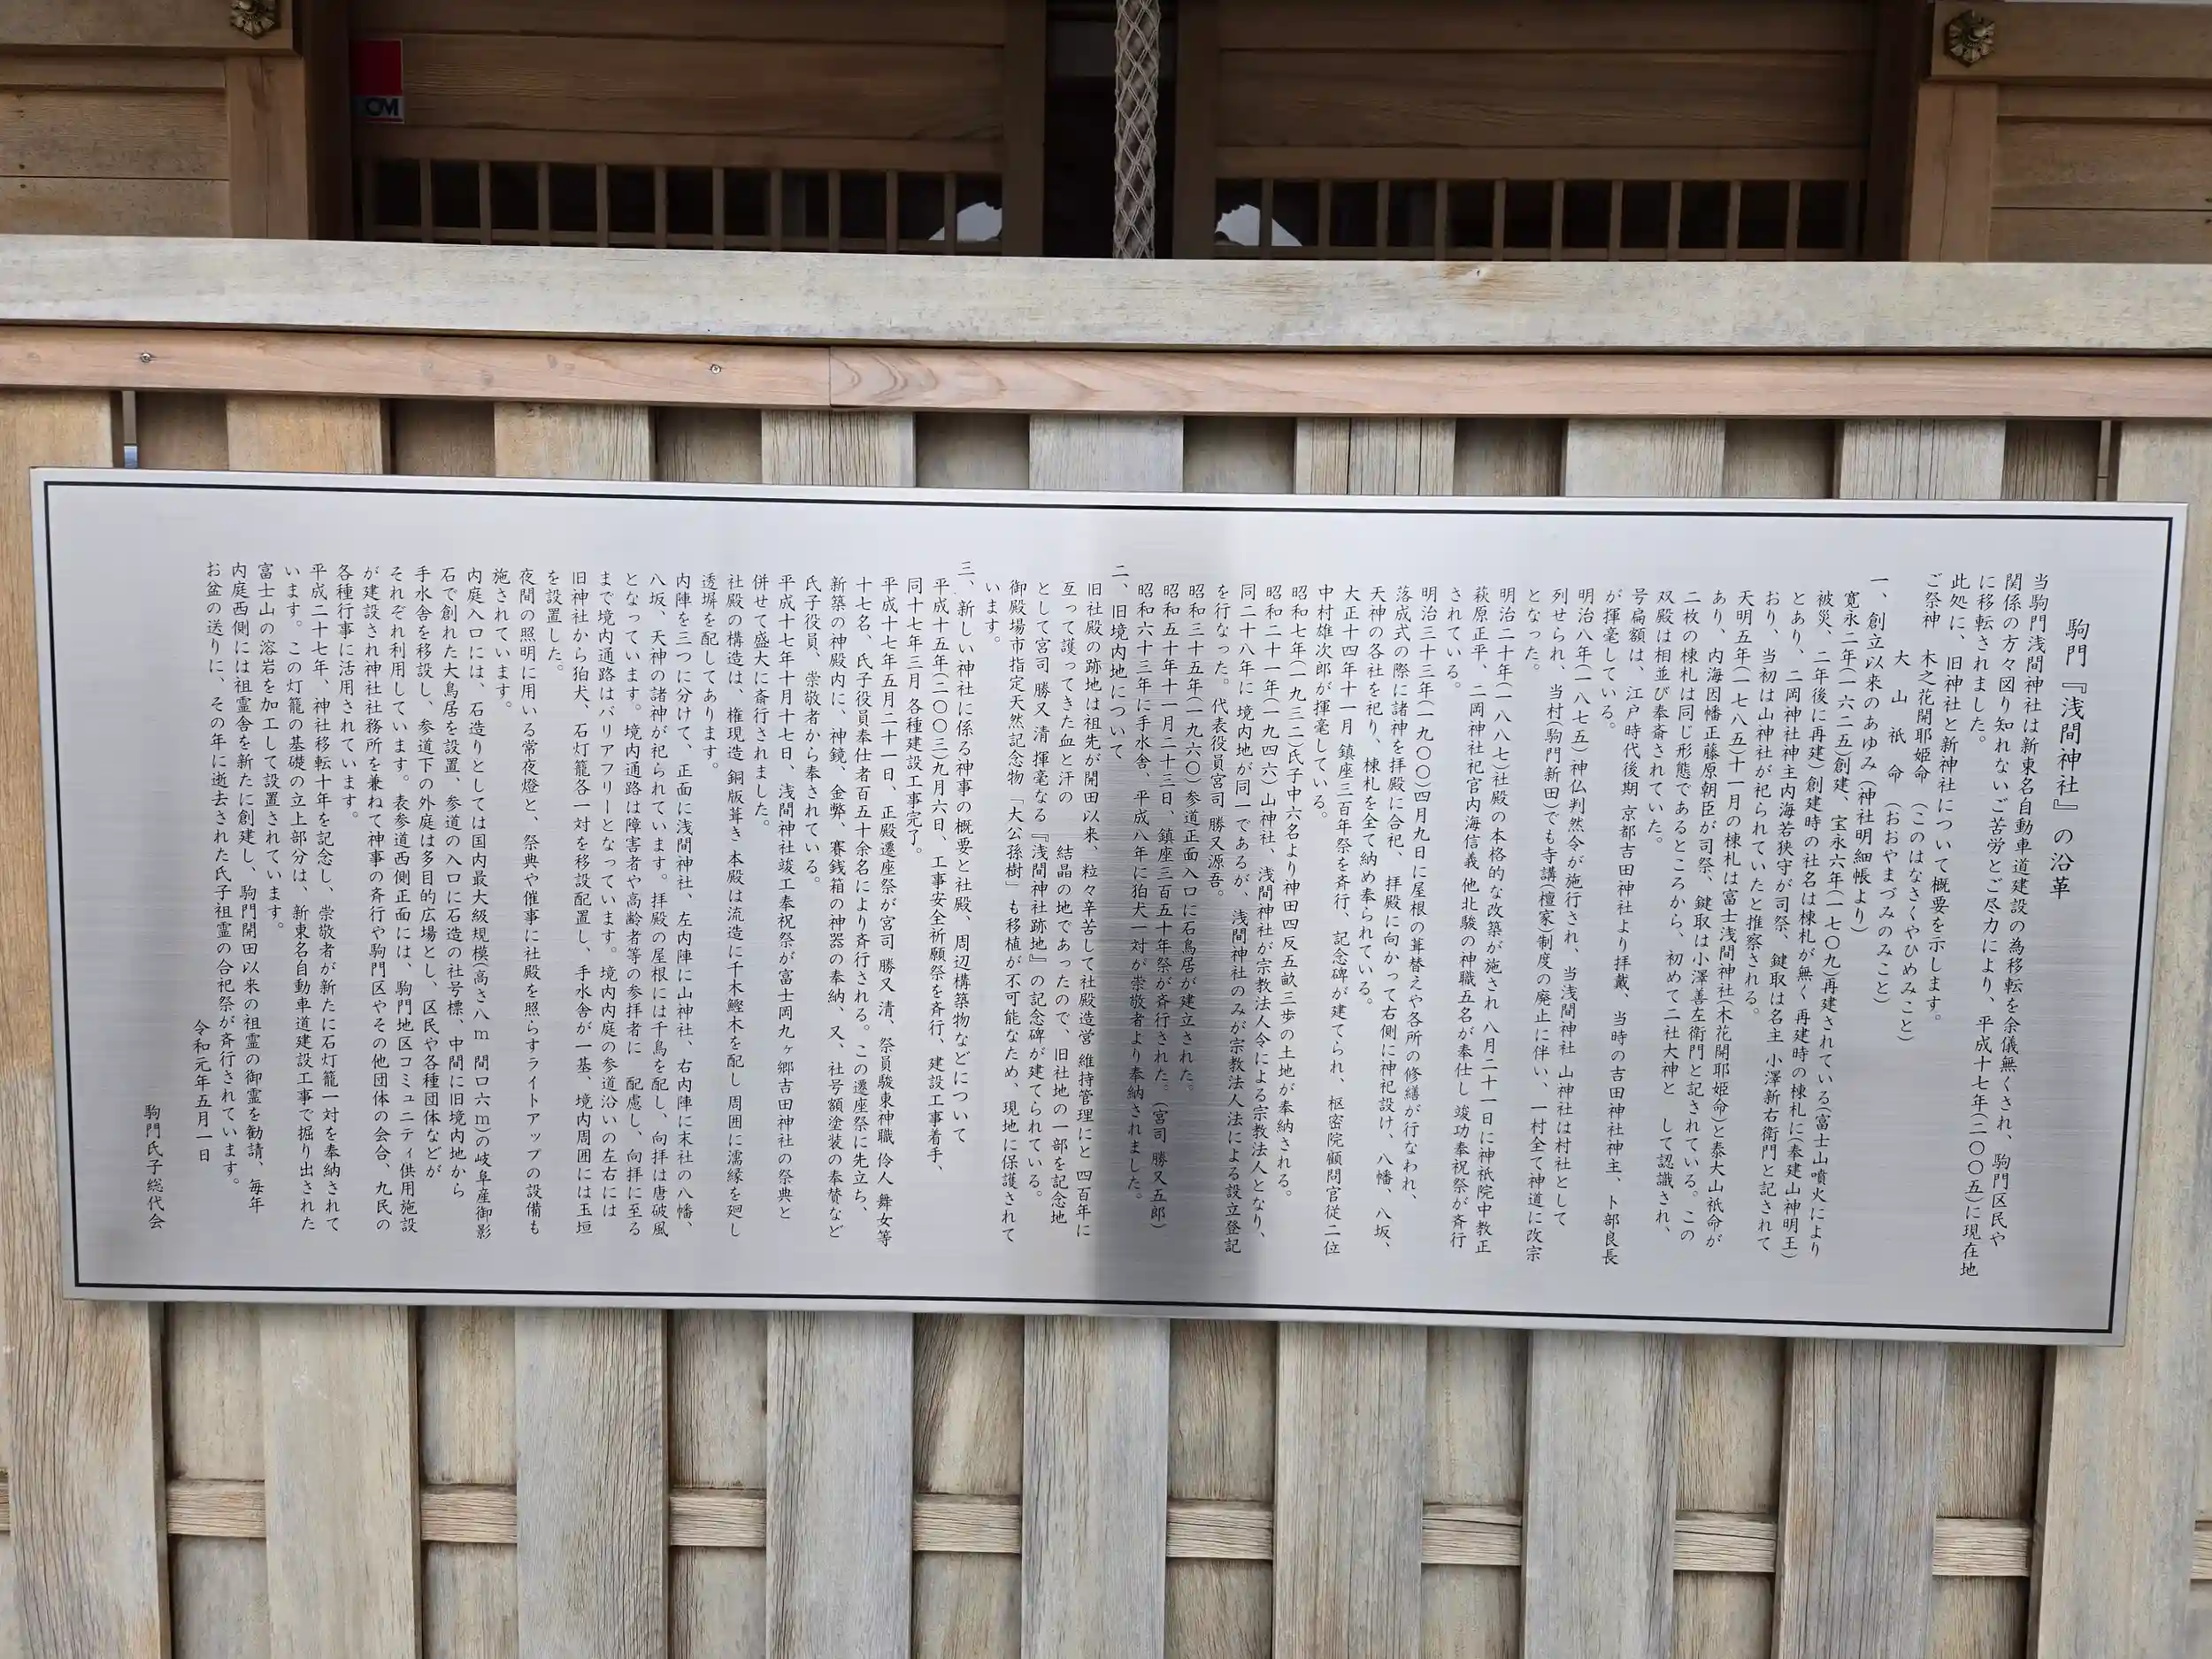 駒門『浅間神社』の沿革
当駒門浅間神社は新東名自動車道建設の為移転を余儀無くされ、駒門区民や
関係の方々図り知れないご苦労とご尽力により、平成十七年(二〇〇五)に現在地
に移転されました。
此処に、旧神社と新神社について概要を示します。
ご祭神 木之花開耶姫命 (このはなさくやひめみこと)
大山祇命 (おおやまづみのみこと)
一、創立以来のあゆみ(神社明細帳より)
寛永二年(一六二五)創建、宝永六年(一七〇九)再建されている(富士山噴火により
被災、二年後に再建)創建時の社名は棟札が無く再建時の棟札に(奉建山神明王)
とあり、二岡神社神主内海若狭守が司祭、鍵取は名主 小澤新右衛門と記されて
おり、当初は山神社が祀られていたと推察される。
天明五年(一七八五)十一月の棟札は富士浅間神社(木花開耶姫命)と泰大山祇命が
あり、内海因幡正藤原朝臣が司祭、鍵取は小澤善左衛門と記されている。この
二枚の棟札は同じ形態であるところから、初めて二社大神と して認識され、
双殿は相並び奉斎されていた。
号扁額は、江戸時代後期 京都吉田神社より拝戴、当時の吉田神社神主、卜部良長
が揮毫している。
明治八年(一八七五)神仏判然令が施行され、当浅間神社 山神社は村社として
列せられ、当村(駒門新田)でも寺講(檀家)制度の廃止に伴い、一村全て神道に改宗
となった。
明治二十年(一八八七)社殿の本格的な改築が施され 八月二十一日に神祇院中教正
萩原正平、二岡神社祀官内海信義 他北駿の神職五名が奉仕し 竣功奉祝祭が斉行
されている。
明治三十三年(一九〇〇)四月九日に屋根の葺替えや各所の修繕が行なわれ、
落成式の際に諸神を拝殿に合祀、拝殿に向かって右側に神祀設け、八幡、八坂、
天神の各社を祀り、棟札を全て納め奉られている。
大正十四年十一月 鎮座三百年祭を斉行、記念碑が建てられ、枢密院顧問官従二位
中村雄次郎が揮毫している。
昭和七年(一九三二)氏子中六名より神田四反五畝三歩の土地が奉納される。
昭和二十一年(一九四六)山神社、浅間神社が宗教法人令による宗教法人となり、
同二十八年に境内地が同一であるが、浅間神社のみが宗教法人法による設立登記
を行なった。代表役員宮司 勝又源吾。
昭和三十五年(一九六〇)参道正面入口に石鳥居が建立された。
昭和五十年十一月二十三日、鎮座三百五十年祭が斉行された。(宮司 勝又五郎)
昭和六十三年に手水舎、平成八年に狛犬一対が崇敬者より奉納されました。
二、旧境内地について
旧社殿の跡地は祖先が開田以来、粒々辛苦して社殿造営 維持管理にと 四百年に
亙って護ってきた血と汗の 結晶の地であったので、旧社地の一部を記念地
として宮司 勝又 清 揮毫なる『浅間神社跡地』の記念碑が建てられている。
御殿場市指定天然記念物「大公孫樹」も移植が不可能なため、現地に保護されて
います。
三、新しい神社に係る神事の概要と社殿、周辺構築物などについて
平成十五年(二〇〇三)九月六日、工事安全祈願祭を斉行、建設工事着手、
同十七年三月 各種建設工事完了。
平成十七年五月二十一日、正殿遷座祭が宮司 勝又 清、祭員駿東神職 伶人 舞女等
十七名、氏子役員奉仕者百五十余名により斉行される。この遷座祭に先立ち、
新築の神殿内に、神鏡、金弊、賽銭箱の神器の奉納、又、社号額塗装の奉賛など
氏子役員、崇敬者から奉されている。
平成十七年十月十七日、浅間神社竣工奉祝祭が富士岡九ヶ郷吉田神社の祭典と
併せて盛大に斎行されました。
社殿の構造は、権現造 銅版葺き 本殿は流造に千木鰹木を配し 周囲に濡縁を廻し
透塀を配してあります。
内陣を三つに分けて、正面に浅間神社、左内陣に山神社、右内陣に末社の八幡、
八坂、天神の諸神が祀られています。拝殿の屋根には千鳥を配し、向拝は唐破風
となっています。境内通路は障害者や高齢者等の参拝者に 配慮し、向拝に至る
まで境内通路はバリアフリーとなっています。境内内庭の参道沿いの左右には
旧神社から狛犬、石灯籠各一対を移設配置し、手水舎が一基、境内周囲には玉垣
を設置した。
夜間の照明に用いる常夜燈と、祭典や催事に社殿を照らすライトアップの設備も
施されています。
内庭入口には、石造りとしては国内最大級規模(高さ八m 間口六m)の岐阜産御影
石で創れた大鳥居を設置、参道の入口に石造の社号標、中間に旧境内地から
手水舎を移設し、参道下の外庭は多目的広場とし、区民や各種団体などが
それぞれ利用しています。表参道西側正面には、駒門地区コミュニティ供用施設
が建設され神社社務所を兼ねて神事の斉行や駒門区やその他団体の会合、九民の
各種行事に活用されています。
平成二十七年、神社移転十年を記念し、崇敬者が新たに石灯籠一対を奉納されて
います。この灯籠の基礎の立上部分は、新東名自動車道建設工事で掘り出された
富士山の溶岩を加工して設置されています。
内庭西側には祖霊舎を新たに創建し、駒門開田以来の祖霊の御霊を勧請、毎年
お盆の送りに、その年に逝去された氏子祖霊の合祀祭が斉行されています。
令和元年五月一日
駒門氏子総代会
CM